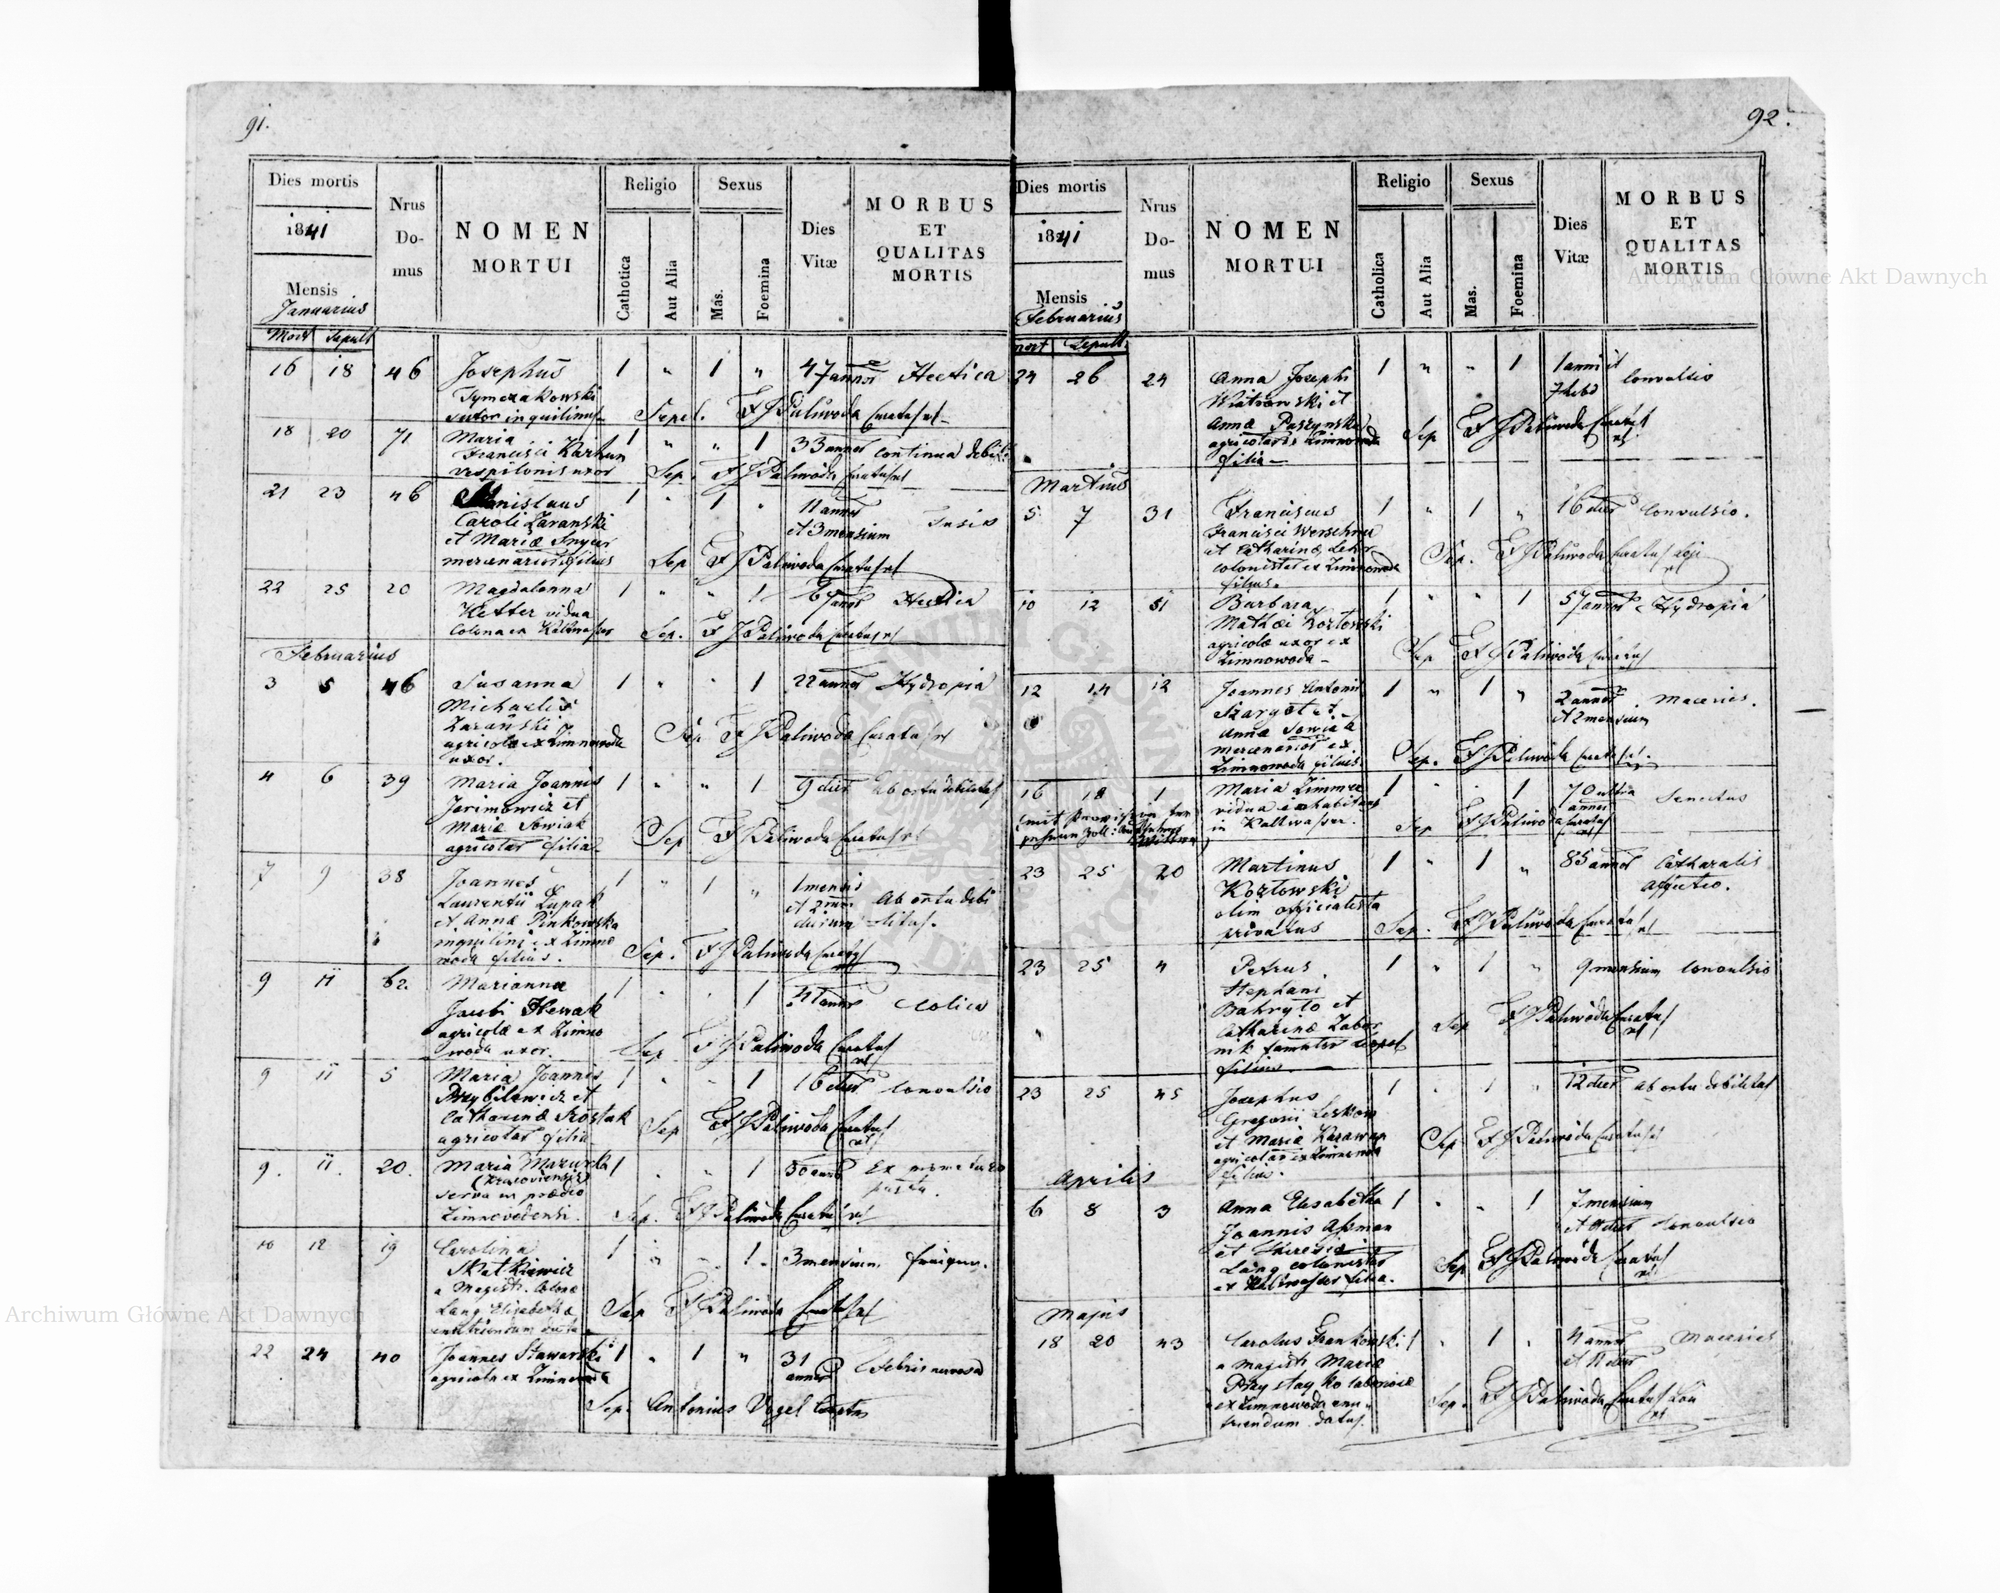 91.
Dies mortis
1841
Mensis
Januarius
Mort Sepult
Nrus
Do-
mus
NOMEN
MORTUI
Religio
Catholica
Aut Alia
Sexus
Mas.
Foemina
Dies
Vitæ
MORBUS
ET
QUALITAS
MORTIS
16 18 46 Josephus 1 " 1 " 47 annor Hectica
Tymczakowski
sutor inquilinus Sepel. F J Paliwoda Curatus
18 20 71 Maria 1 " " 1 33 annor continua debil
Francisci
vespilonis uxor Sep. F J Paliwoda Curatus
21 23 46 Stanislaus 1 " 1 " 11 annor Tusis
Caroli Zaranski et 3 mensium
et Mariæ
mercenarior filius Sep F J Paliwoda Curatus
22 25 20 Magdalenna 1 " " 1 67 annor Hectica
Ketter vidua
colona ex Kaltwasser Sep. F J Paliwoda Curatus
Februarius
3 5 46 Susanna 1 " " 1 22 annor Hydropia
Michaelis
Zaranski
agricolæ ex Zimnowoda Sep F J Paliwoda Curatus
uxor.
4 6 39 Maria Joannis 1 " " 1 9 dier Ab ortu debilitas
Jarimowicz et
Mariæ Sowiak
agricolar filia Sep F J Paliwoda Curatus
7 9 38 Joannes 1 " 1 " 1 mensis
Laurentii Lupak et 2 Ab ortu debi
et Annæ Pinkowska dierum litas.
inquilini ex Zimno
woda filius. Sep. F J Paliwoda Curatus
9 11 62. Marianna 1 " " 1 41 annor Colica
Jacobi
agricolæ ex Zimno
woda uxor. Sep F J Paliwoda Curatus
9 11 5 Maria Joannes 1 " " 1 16 dier Convulsio
Przybilowicz et
Catharinæ Szostak
agricolar filia Sep F J Paliwoda Curatus
9. 11. 20. Maria Mazurska 1 " " 1 50 annor Ex
(Kracoviensis)
serva in prædio
Zimnovodensi. Sep. F J Paliwoda Curatus
10 12 19 Carolina 1 " " 1 3 mensium.
Matkiewicz
a Magistr. Colonæ
Lang Elisabethæ Sep F J Paliwoda Curatus
enutriendum data
22 24 40 Joannes Stawarski 1 " 1 " 31 Febris nervosa
agricola ex Zimnowoda annor
Sep. Antonius Vogel
92.
Dies mortis
1841
Mensis
Februarius
mort Sepult
Nrus
Do-
mus
NOMEN
MORTUI
Religio
Catholica
Aut Alia
Sexus
Mas.
Foemina
Dies
Vitæ
MORBUS
ET
QUALITAS
MORTIS
24 26 24 Anna Josephi 1 " " 1 1 anni et Convulsio
Wiatrowski et 7 hebd
Annæ Paszynska
agricolar ex Zimnowoda Sep F J Paliwoda Curatus
filia
Martius
5 7 31 Franciscus 1 " 1 " 16 dier Convulsio.
Francisci Werschner
et Catharinæ Lehr Sep. F J Paliwoda Curatus
colonistar ex Zimnowoda
filius.
10 12 51 Barbara 1 " " 1 57 annor Hydropia
Mathæi Kozłowski
agricolæ uxor ex Sep F J Paliwoda Curatus
Zimnowoda
12 14 12 Joannes Antonii 1 " 1 " 2 annor Macies.
Szargot et et 2 mensium
Annæ Sowiak
mercenarior ex Sep. F J Paliwoda Curatus
Zimnowoda filius.
16 18 1 Maria Zimmer 1 " " 1 70 ultra Senectus
vidua annor
in Kaltwasser. Sep F J Paliwoda Curatus
23 25 20 Martinus 1 " 1 " 85 annor Catharalis
Kozłowski affectio.
olim officialista
privatus Sep. F J Paliwoda Curatus
23 25 4 Petrus 1 " 1 " 9 mensium Convulsio
Stephani
Bahryto et
Catharinæ Zabor Sep F J Paliwoda Curatus
nik
filius
23 25 45 Josephus 1 " 1 " 12 dier ab ortu debilitas
Gregorii Leskow
et Mariæ Karawan Sep F J Paliwoda Curatus
agricolar ex Zimnowoda
filius.
Aprilis
6 8 3 Anna Elisabetha 1 " " 1 7 mensium
Joannis Assman et dier Convulsio
et Theresiæ
Lang colonistar Sep F J Paliwoda Curatus
ex Kaltwasser filia.
Majus
18 20 43 Carolus Frankowski 1 " 1 " 4 annor Macies
a magistr Mariæ et 11 dier
ex Zimnowoda enu- Sep. F J Paliwoda Curatus
triendum datus.
Archiwum Główne Akt Dawnych
Archiwum Główne Akt Dawnych